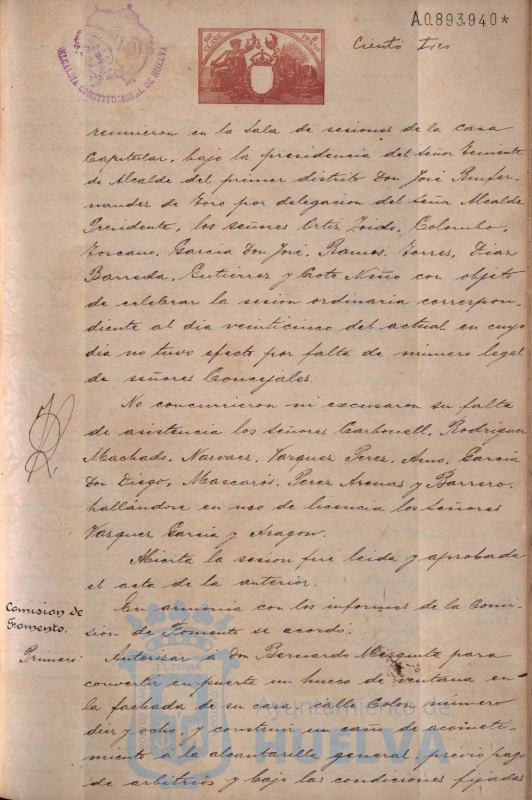 A.0.893,940*
ALCALDIA CONSTITUCIONAL DE HUELVA
CLASE
Ciento tres
reunieron en la Sala de sesiones de la casa
Capitular, bajo la presidencia del señor Teniente
de Alcalde del primer distrito Don José
de Toro por delegacion del Señor Alcalde
Presidente, los señores Ortiz Toido, Colombo,
Toscano, Garcia Don José, Ramos, Torres, Diaz
Barreda, Gutierrez y Coto Niño con objeto
de celebrar la sesion ordinaria correspon-
diente al dia veinticinco del actual en cuyo
dia no tuvo efecto por falta de número legal
de señores Concejales.
No concurrieron ni excusaron su falta
de asistencia los señores Carbonell, Rodriguez
Machado, Narvaez, Vazquez Perez, Amo, Garcia
Don Diego, Mascarós, Perez Arenas y Barrero
hallándose en uso de licencia los Señores
Vazquez Garcia y Aragon.
Abierta la sesion fué leida y aprobada
el acta de la anterior.
Comision de
Fomento.
En armonia con los informes de la Comi-
sion de Fomento se acordó.
Primero:
Autorizar á don Bernardo Mezquita para
convertir en puerta un hueco de ventana en
la fachada de su casa, calle Colon número
diez y ocho, y construir un caño de acometi-
miento á la alcantarilla general, previo pago
de arbitrios y bajo las condiciones fijadas
Ayuntamiento de
HUELVA